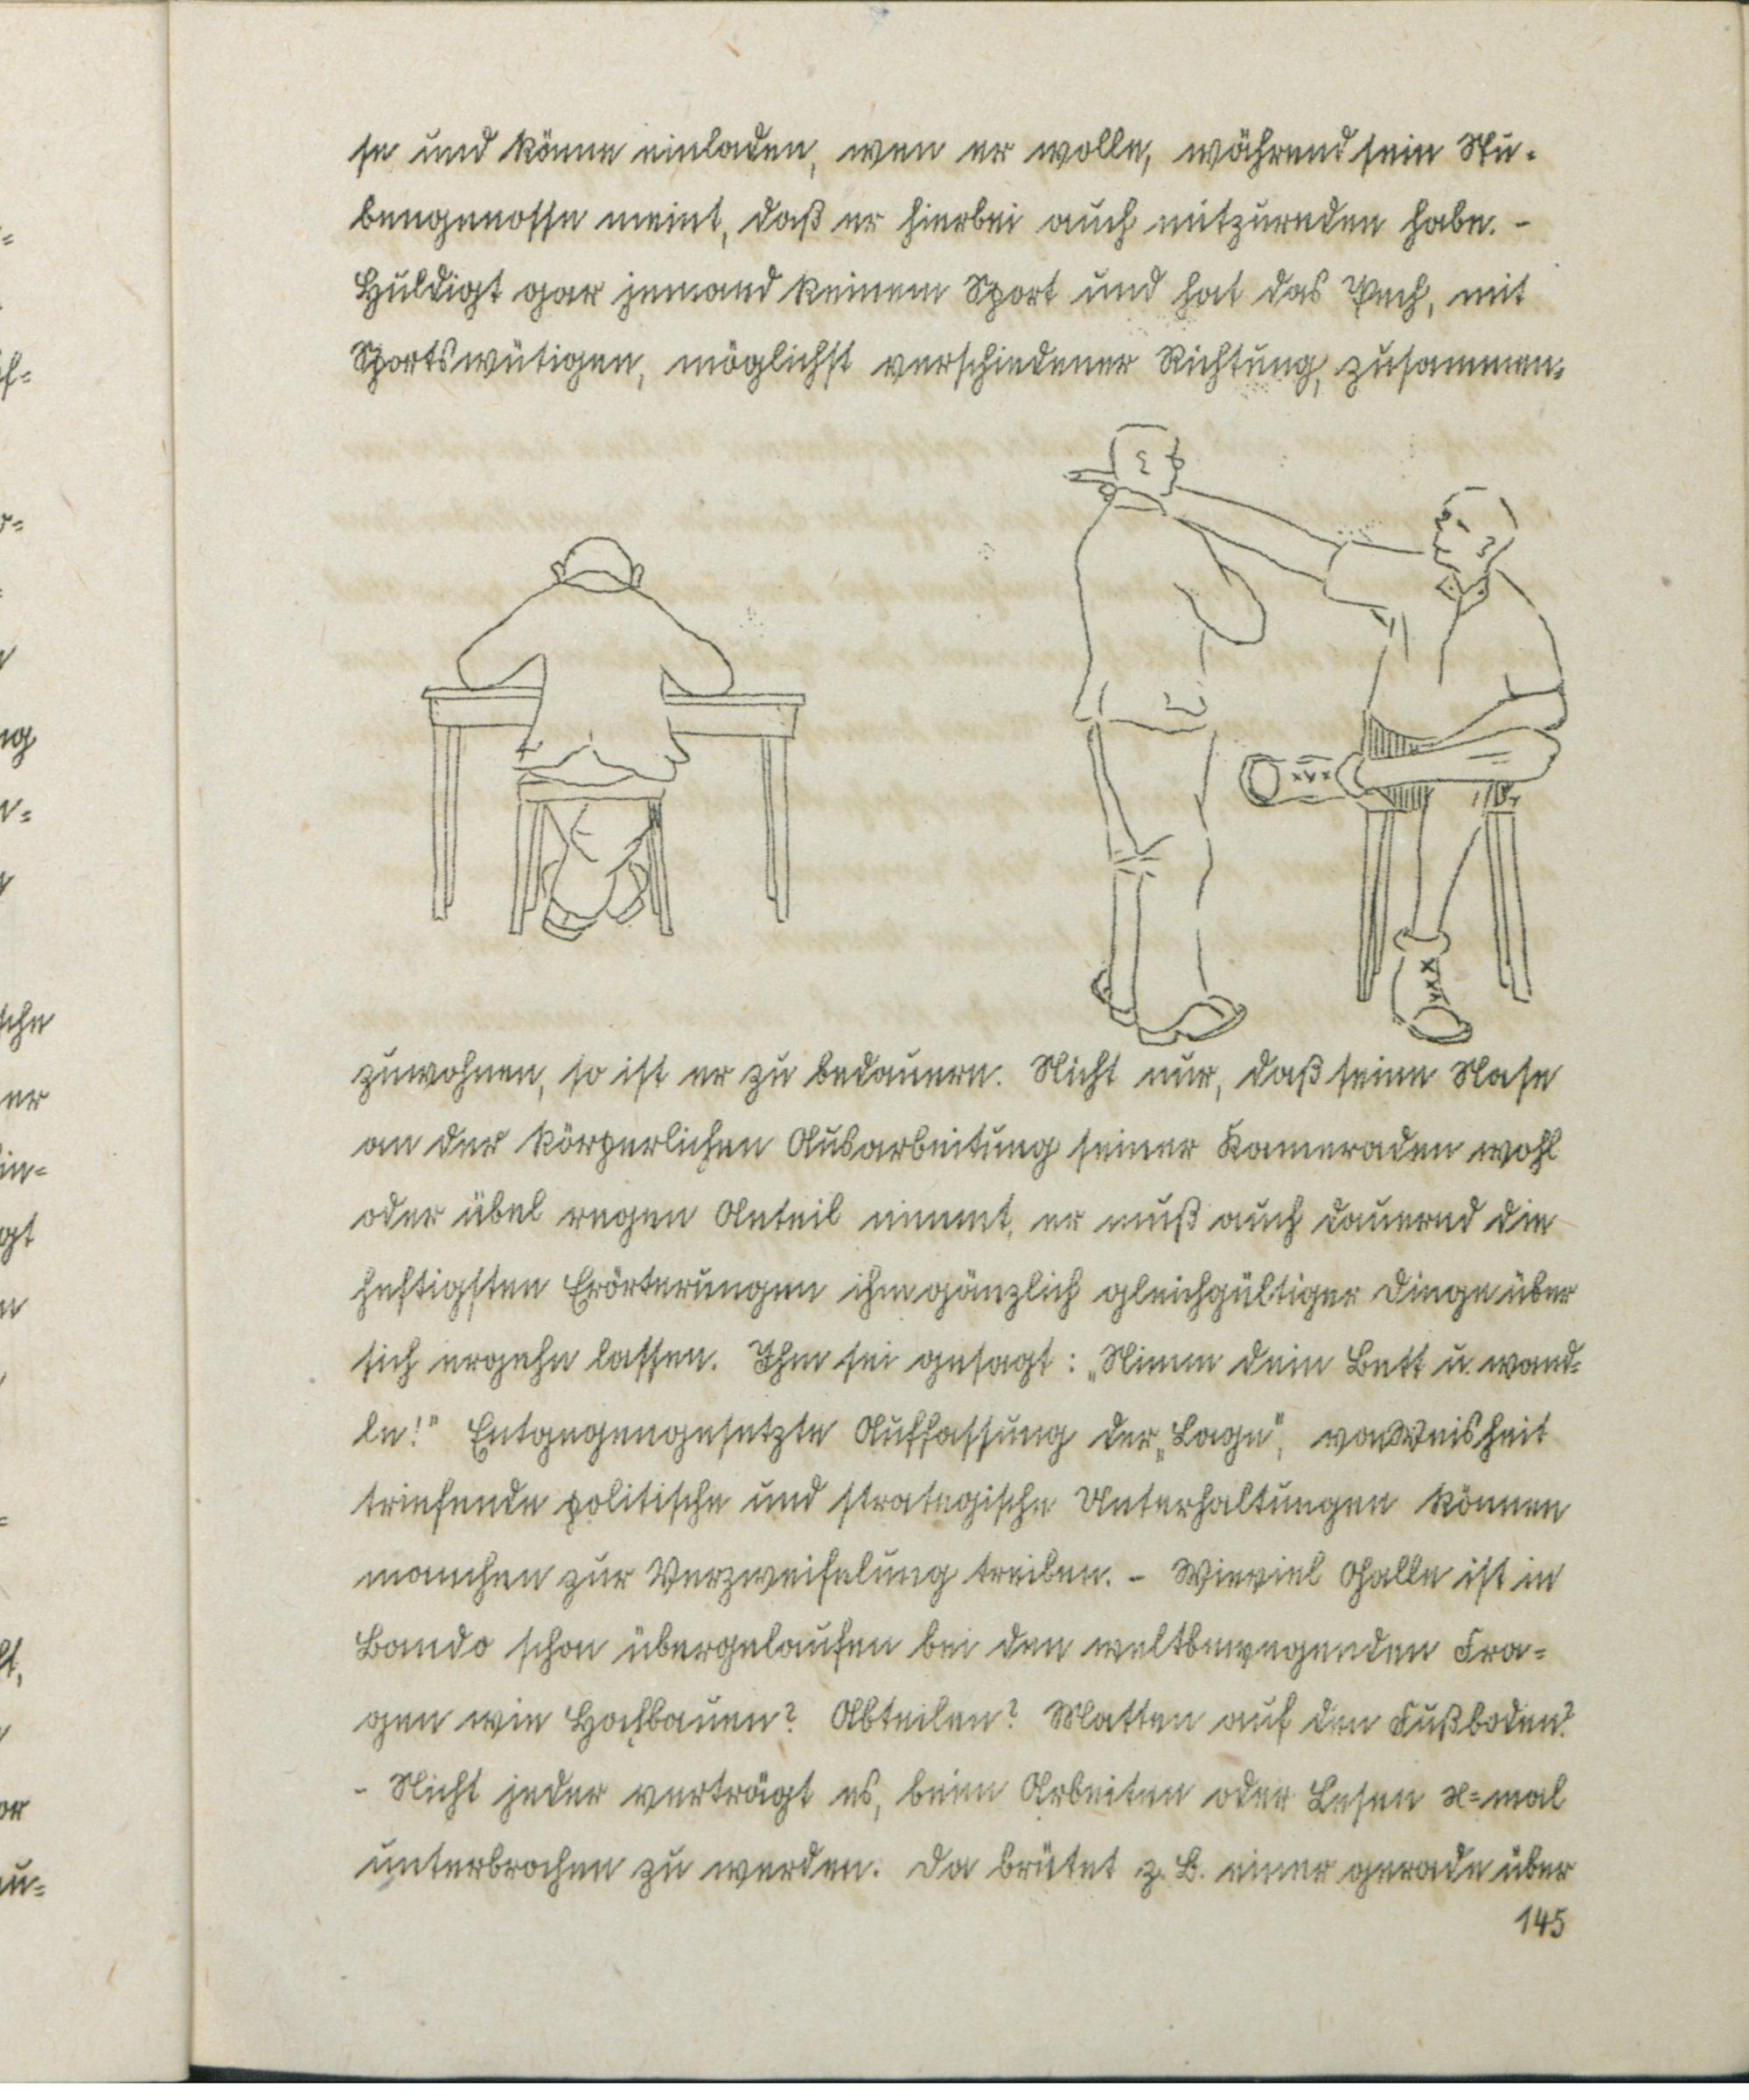 se und könne einladen, wen er wolle, während sein Stu-
bengenosse meint, daß er hierbei auch mitzureden habe. -
Huldigt gar jemand keinem Sport und hat das Pech, mit
Sportswütigen, möglichst verschiedener Richtung, zusammen=
zuwohnen, so ist er zu bedauern. Nicht nur, daß seine Nase
an der körperlichen Ausarbeitung seiner Kameraden wohl
oder übel regen Anteil nimmt, er muß auch dauernd die
heftigsten Erörterungen ihm gänzlich gleichgültiger Dinge über
sich ergehn lassen. Ihm sei gesagt: „Nimm dein Bett u. wand=
le!" Entgegengesetzte Auffassung der „Lage", von Weisheit
triefende politische und strategische Unterhaltungen können
manchen zur Verzweifelung treiben. - Wieviel Galle ist in
Bando schon übergelaufen bei den weltbewegenden Fra=
gen wie Hochbauen? Abteilen? Matten auf den Fußboden?
- Nicht jeder verträgt es, beim Arbeiten oder Lesen x=mal
unterbrochen zu werden. Da brütet z. B. einer gerade über
145